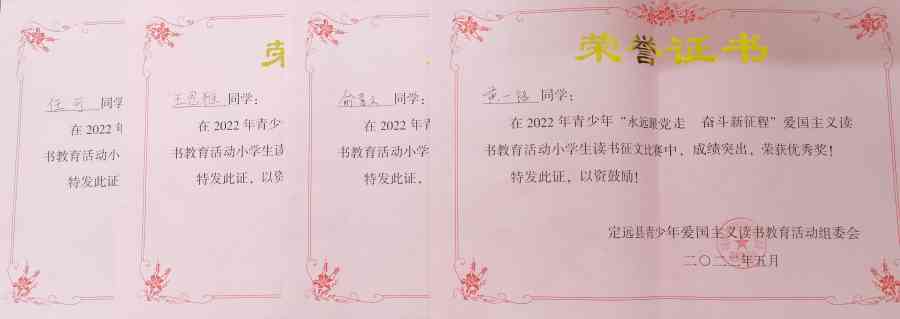 任可 同学
在 2022 年
书教育活动小
特发此证
荣
王思雅 同学：
在 2022 年青少
书教育活动小学生读
特发此证，以资
同学：
在 2022 年青少年
书教育活动小学生
特发此证，
荣誉证书
黄一铭 同学：
在 2022 年青少年“永远跟党走 奋斗新征程”爱国主义读
书教育活动小学生读书征文比赛中，成绩突出，荣获优秀奖！
特发此证，以资鼓励！
定远县青少年爱国主义读书教育活动组委会
二〇二二年五月